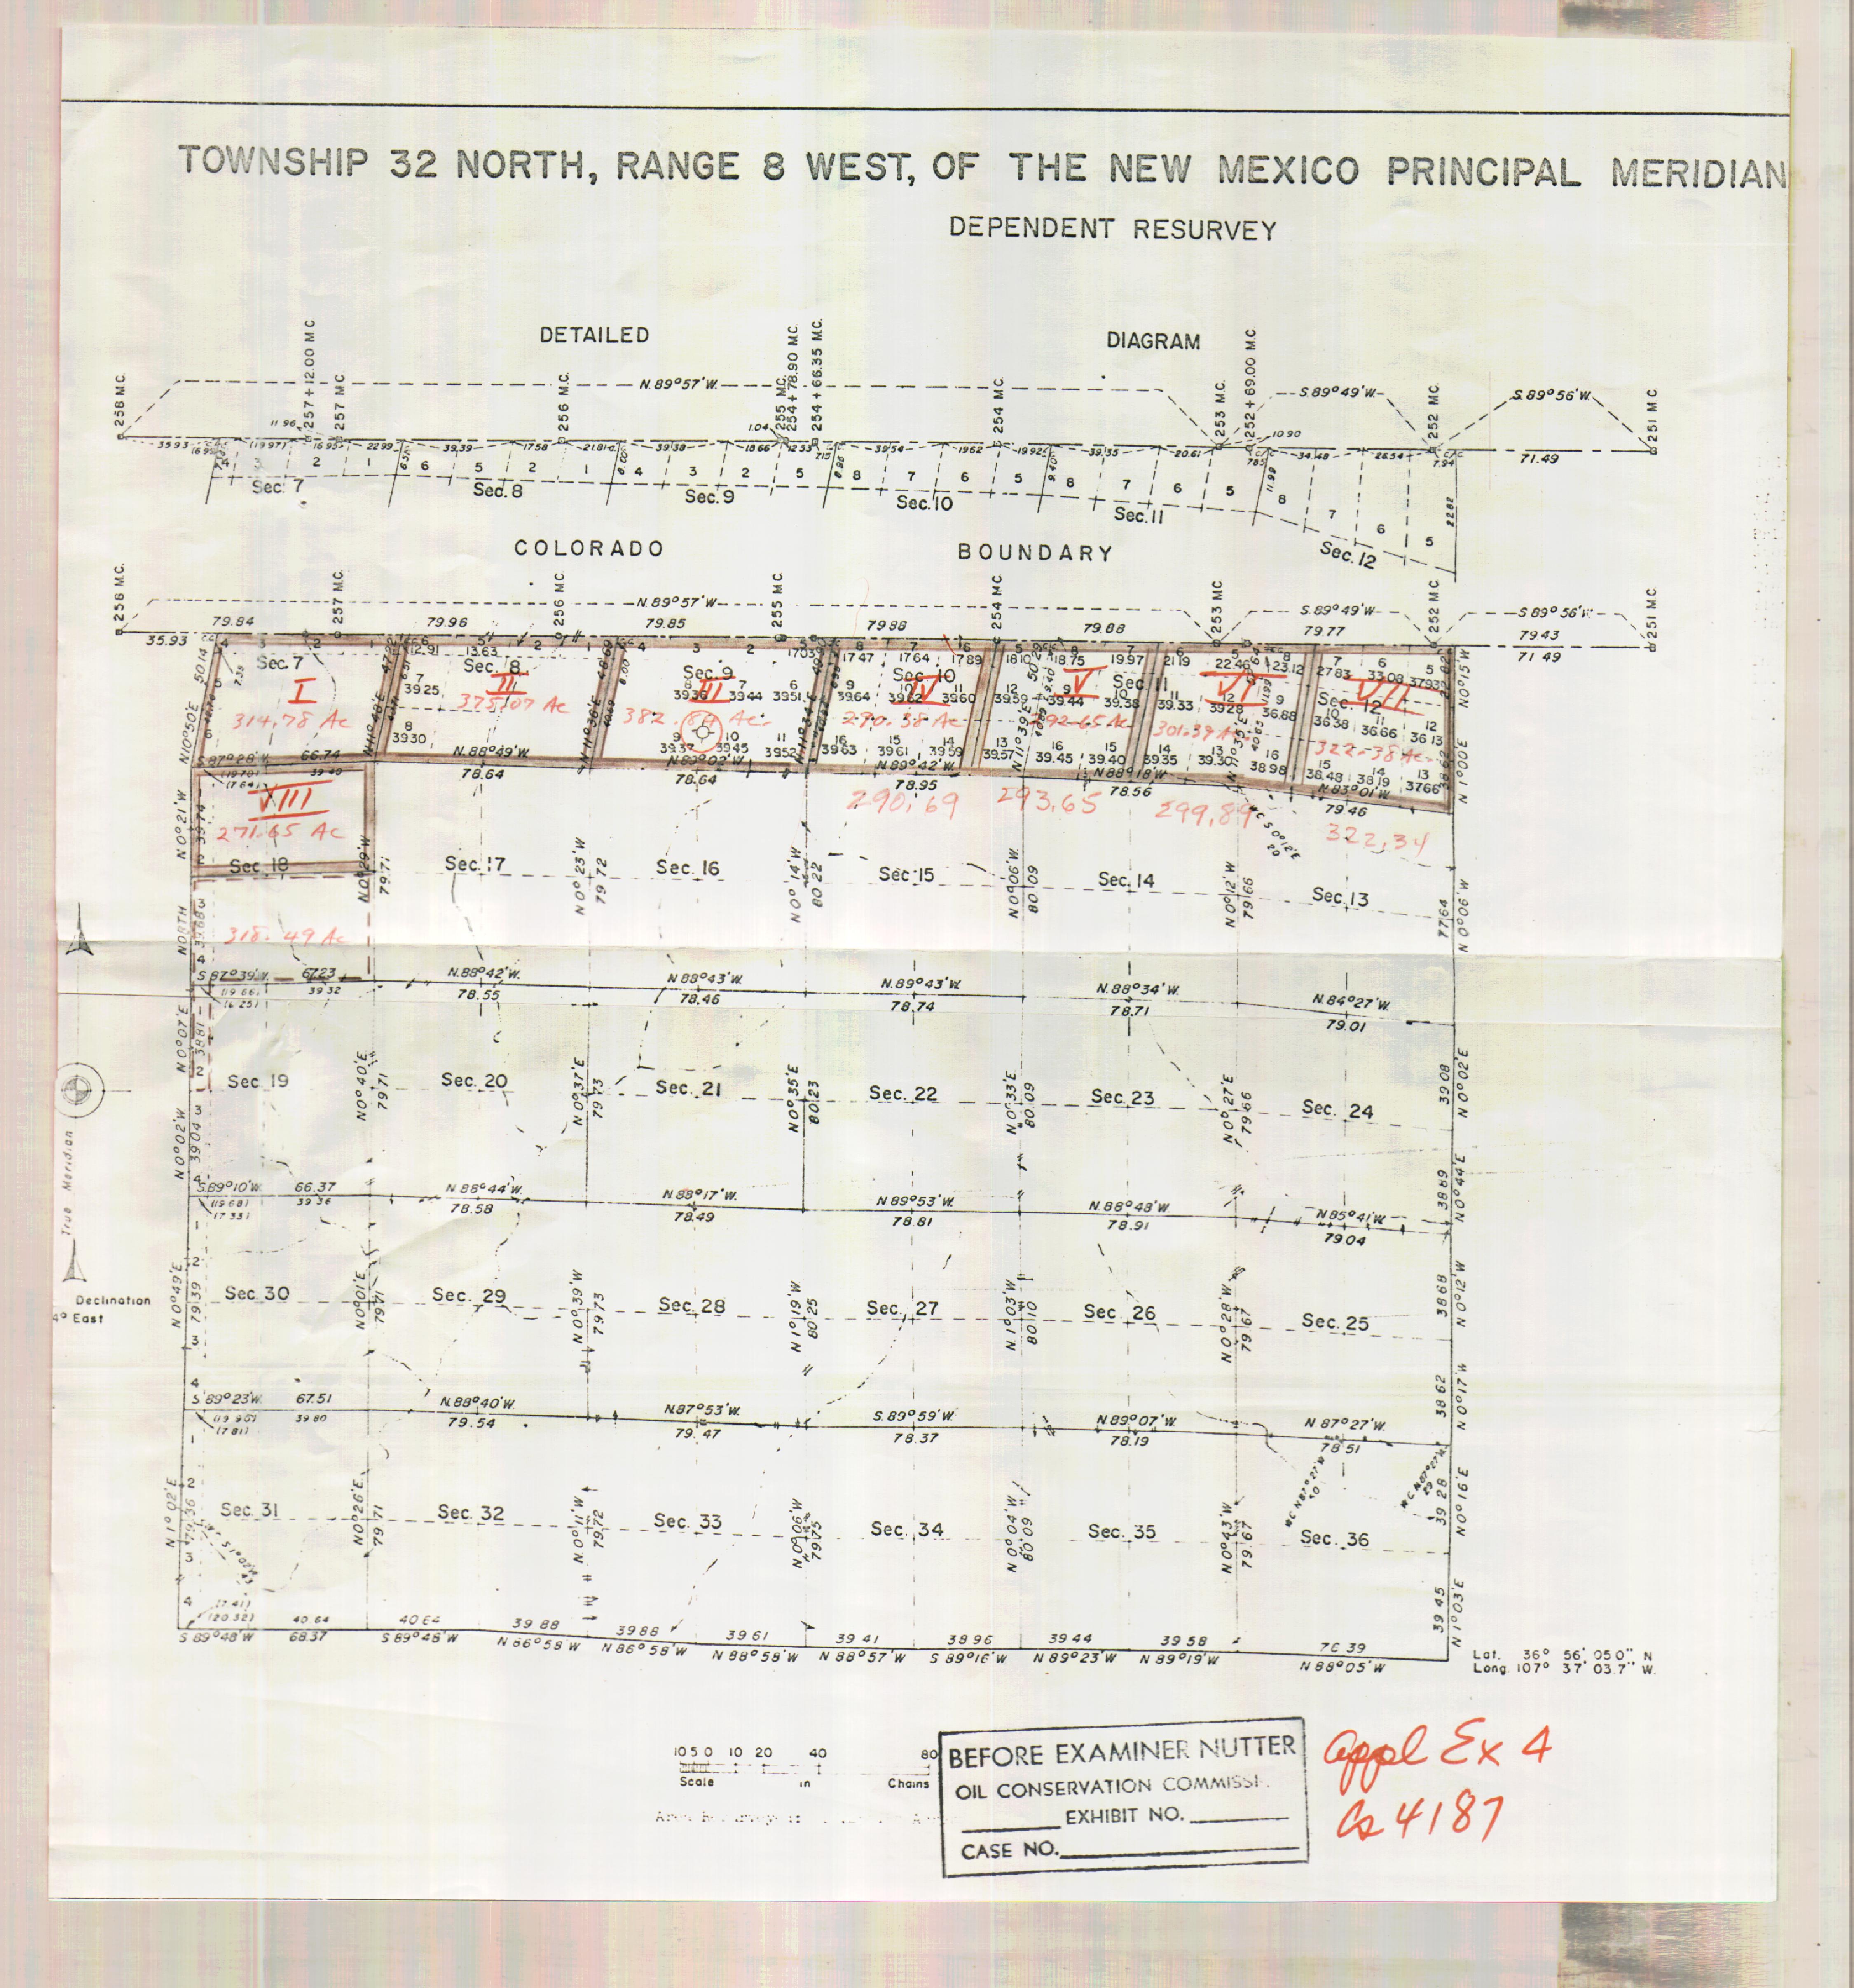 TOWNSHIP 32 NORTH, RANGE 8 WEST, OF THE NEW MEXICO PRINCIPAL MERIDIAN
DEPENDENT RESURVEY
DETAILED DIAGRAM
258 M.C. 257+12.00 M.C. 257 M.C. 256 M.C. 255 M.C. 254+78.90 M.C. 254+66.35 M.C. 254 M.C. 253 M.C. 252+69.00 M.C. 252 M.C. 251 M.C.
N.89°57'W. S.89°49'W. S.89°56'W.
35.93 11.96 22.99 39.39 17.58 21.81 39.38 18.66 1.04 12.53 39.54 19.62 19.92 39.35 20.61 10.90 7.85 34.48 26.54 7.94 71.49
4 3 2 1 6 5 2 1 4 3 2 5 8 7 6 5 8 7 6 5 8 7 6 5
Sec. 7 Sec. 8 Sec. 9 Sec. 10 Sec. 11 Sec. 12
COLORADO BOUNDARY
258 M.C. 257 M.C. 256 M.C. 255 M.C. 254 M.C. 253 M.C. 252 M.C. 251 M.C.
N.89°57'W S.89°49'W. S.89°56'W.
35.93 79.84 79.96 79.85 79.88 79.88 79.77 79.43
71.49
Sec. 7 Sec. 8 Sec. 9 Sec. 10 Sec. 11 Sec. 12
12.91 13.63 17.03 17.47 17.64 17.89 18.10 18.75 19.97 21.19 22.46 23.12 27.83 33.08 37.93
I II III IV V VI VII
39.25 39.36 39.44 39.51 39.64 39.62 39.60 39.59 39.44 39.38 39.33 39.28 36.88 36.38 36.66 36.13
314.78 Ac 375.07 Ac 382.84 Ac. 270.38 Ac 292.65 Ac 301.39 Ac 322.38 Ac.
39.30 39.37 39.45 39.52 39.63 39.61 39.59 39.57 39.45 39.40 39.35 39.30 38.98 38.48 38.19 37.66
S.87°28'W. 66.74 N.88°49'W. N.89°02'W. N.89°42'W. N.88°18'W. N.83°01'W.
39.40 78.64 78.64 78.95 78.56 79.46
VIII
271.65 Ac
290.69 293.65 299.89 322.34
Sec. 18 Sec. 17 Sec. 16 Sec. 15 Sec. 14 Sec. 13
N0°29'W 79.71 N0°23'W 79.72 N0°14'W 80.22 N0°06'W. 80.09 N0°12'W 79.66 77.64 N0°06'W
318.49 Ac
S.87°39'W. 67.23 N.88°42'W. N.88°43'W. N.89°43'W. N.88°34'W. N.84°27'W.
39.32 78.55 78.46 78.74 78.71 79.01
Sec. 19 Sec. 20 Sec. 21 Sec. 22 Sec. 23 Sec. 24
N0°40'E 79.71 N0°37'E 79.73 N0°35'E 80.23 N0°33'E 80.09 N0°27'E 79.66 39.08 N0°02'E
True Meridian
S.89°10'W. 66.37 N.88°44'W. N.88°17'W. N.89°53'W. N.88°48'W. N.85°41'W.
39.36 78.58 78.49 78.81 78.91 79.04
Declination
4° East
Sec. 30 Sec. 29 Sec. 28 Sec. 27 Sec. 26 Sec. 25
N0°49'E 79.39 N0°01'E 79.71 N0°39'W. 79.73 N1°19'W 80.25 N1°03'W 80.10 N0°28'W. 79.67 38.68 N0°12'W
S.89°23'W. 67.51 N.88°40'W. N.87°53'W. S.89°59'W. N.89°07'W. N 87°27'W.
39.80 79.54 79.47 78.37 78.19 78.51
Sec. 31 Sec. 32 Sec. 33 Sec. 34 Sec. 35 Sec. 36
N1°02'E 79.36 N0°26'E 79.71 N0°11'W. 79.72 N0°06'W. 79.75 N0°04'W 80.09 N0°43'W 79.67 39.28 N0°16'E
(20.32) 40.64 40.64 39.88 39.88 39.61 39.41 38.96 39.44 39.58 76.39 39.45 N1°03'E
S 89°48'W 68.37 S 89°48'W N 86°58'W N 86°58'W N 88°58'W N 88°57'W S 89°16'W N 89°23'W N 89°19'W N 88°05'W
Lat. 36° 56' 05.0" N
Long. 107° 37' 03.7" W.
10 5 0 10 20 40 80
Scale in Chains
BEFORE EXAMINER NUTTER
OIL CONSERVATION COMMISSI
EXHIBIT NO.
CASE NO.
appl Ex 4
Cs 4187